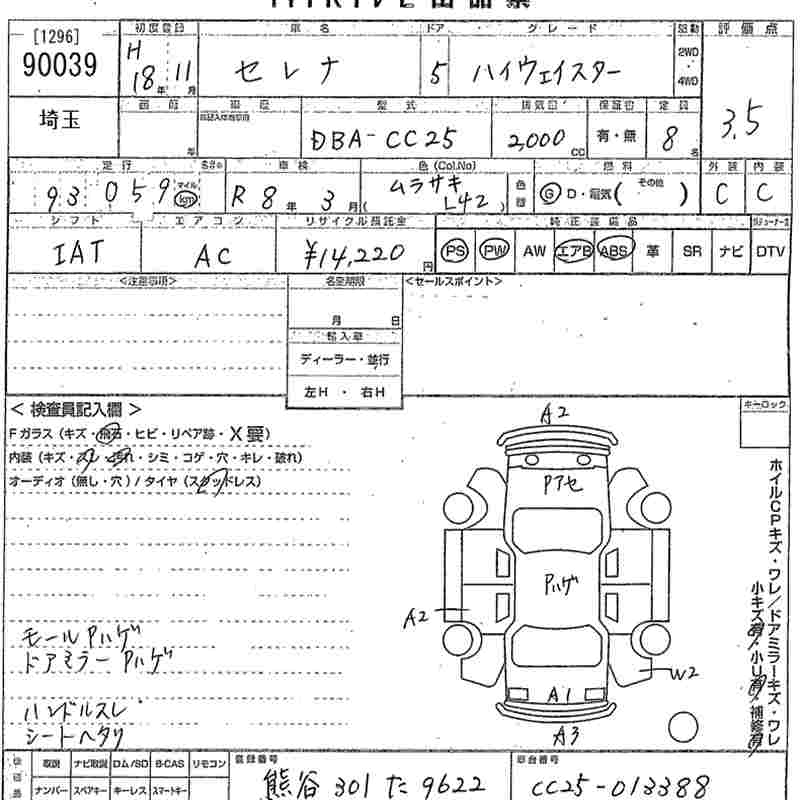 [1296]
90039
初度登録 車名 ドア グレード 駆動 評価点
H 18年 11月 セレナ 5 ハイウェイスター 2WD 4WD 3.5
埼玉
型式 排気量 保証書 定員
DBA-CC25 2,000cc 有・無 8名
走行 車検 色(Col.No) 燃料 外装 内装
93,059 マイル km R8年 3月 ムラサキ (L42) G D・電気( その他 ) C C
シフト エアコン リサイクル預託金 純正装備品
IAT AC ¥14,220円 PS PW AW エアB ABS 革 SR ナビ DTV
<注意事項> 名変期限 <セールスポイント>
月 日
輸入車
ディーラー・並行
左H・右H
<検査員記入欄> キーロック
Fガラス(キズ・飛石・ヒビ・リペア跡・X要)
内装(キズ・スレ・汚れ・シミ・コゲ・穴・キレ・破れ)
オーディオ(無し・穴)/タイヤ(スタッドレス)
A2
Pアセ
Pハゲ
A2
W2
A1
A3
ホイルCPキズ・ワレ/ドアミラーキズ・ワレ
小キズ有・小U有・補修有
モールPハゲ
ドアミラーPハゲ
ハンドルスレ
シートヘタリ
取説 ナビ取説 ロム/SD B-CAS リモコン 登録番号 車台番号
ナンバー スペアキー キーレス スマートキー 熊谷 301 た 9622 CC25-013388